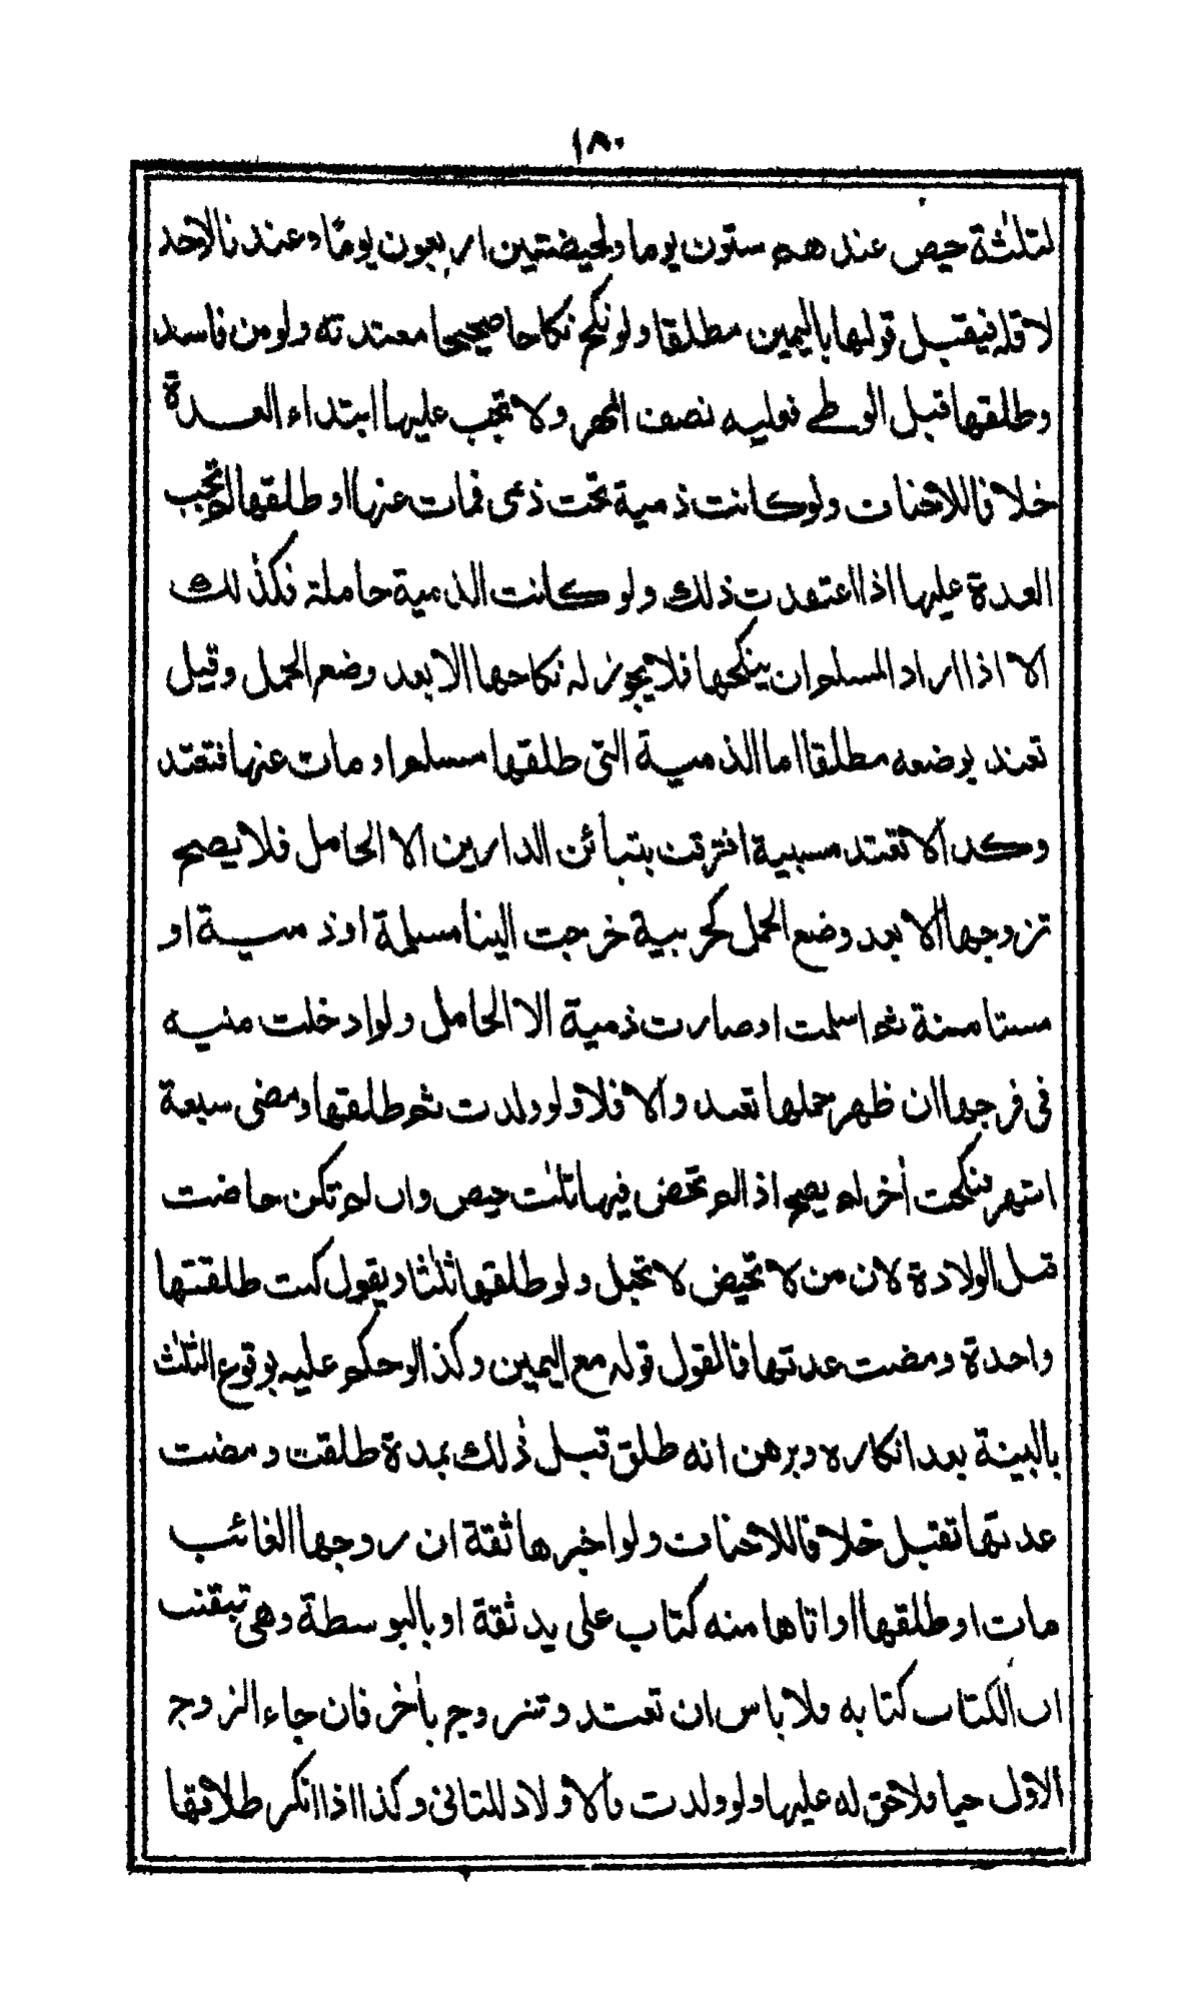 ١٨٠
لتلثة حيض عندهم ستون يوما ولحيضتين اربعون يومًا وعندنا لاحد
لاقله فيقبل قولها باليمين مطلقا ولو نكح نكاحا صحيحا معتدته ولو من فاسد
وطلقها قبل الوطے فعليه نصف المهر ولا تجب عليها ابتداء العدة
خلافا للاحناف ولو كانت ذمية تحت ذمى فمات عنها او طلقها لم تجب
العدة عليها اذا اعتقدت ذلك ولو كانت الذمية حاملة فكذلك
الا اذا اراد المسلم ان ينكحها فلا يجوز له نكاحها الا بعد وضع الحمل وقيل
تعتد بوضعه مطلقا اما الذمية التى طلقها مسلم او مات عنها فتعتد
وكذا لا تعتد مسبية افترقت بتبائن الدارين الا الحامل فلا يصح
تزوجها الا بعد وضع الحمل كحربية خرجت الينا مسلمة او ذمية او
مستامنة ثم اسلمت او صارت ذمية الا الحامل ولو ادخلت منيه
فى فرجها ان ظهر حملها تعتد والا فلا ولو ولدت ثم طلقها ومضى سبعة
اشهر فنكحت أخر لم يصح اذا لم تحض فيها ثلث حيض وان لم تكن حاضت
قبل الولادة لان من لا تحيض لا تحبل ولو طلقها ثلثا ويقول كنت طلقتها
واحدة ومضت عدتها فالقول قوله مع اليمين وكذا لو حكم عليه بوقوع الثلث
بالبينة بعد انكاره وبرهن انه طلق قبل ذلك بمدة طلقت ومضت
عدتها تقبل خلافا للاحناف ولو اخبرها ثقة ان زوجها الغائب
مات او طلقها او اتاها منه كتاب على يد ثقة او بالبوسطة وهى تيقنت
ان الكتاب كتابه فلا باس ان تعتد وتتزوج بأخر فان جاء الزوج
الاول حيا فلا حق له عليها ولو ولدت فالاولاد للثانى وكذا اذا انكر طلاقها